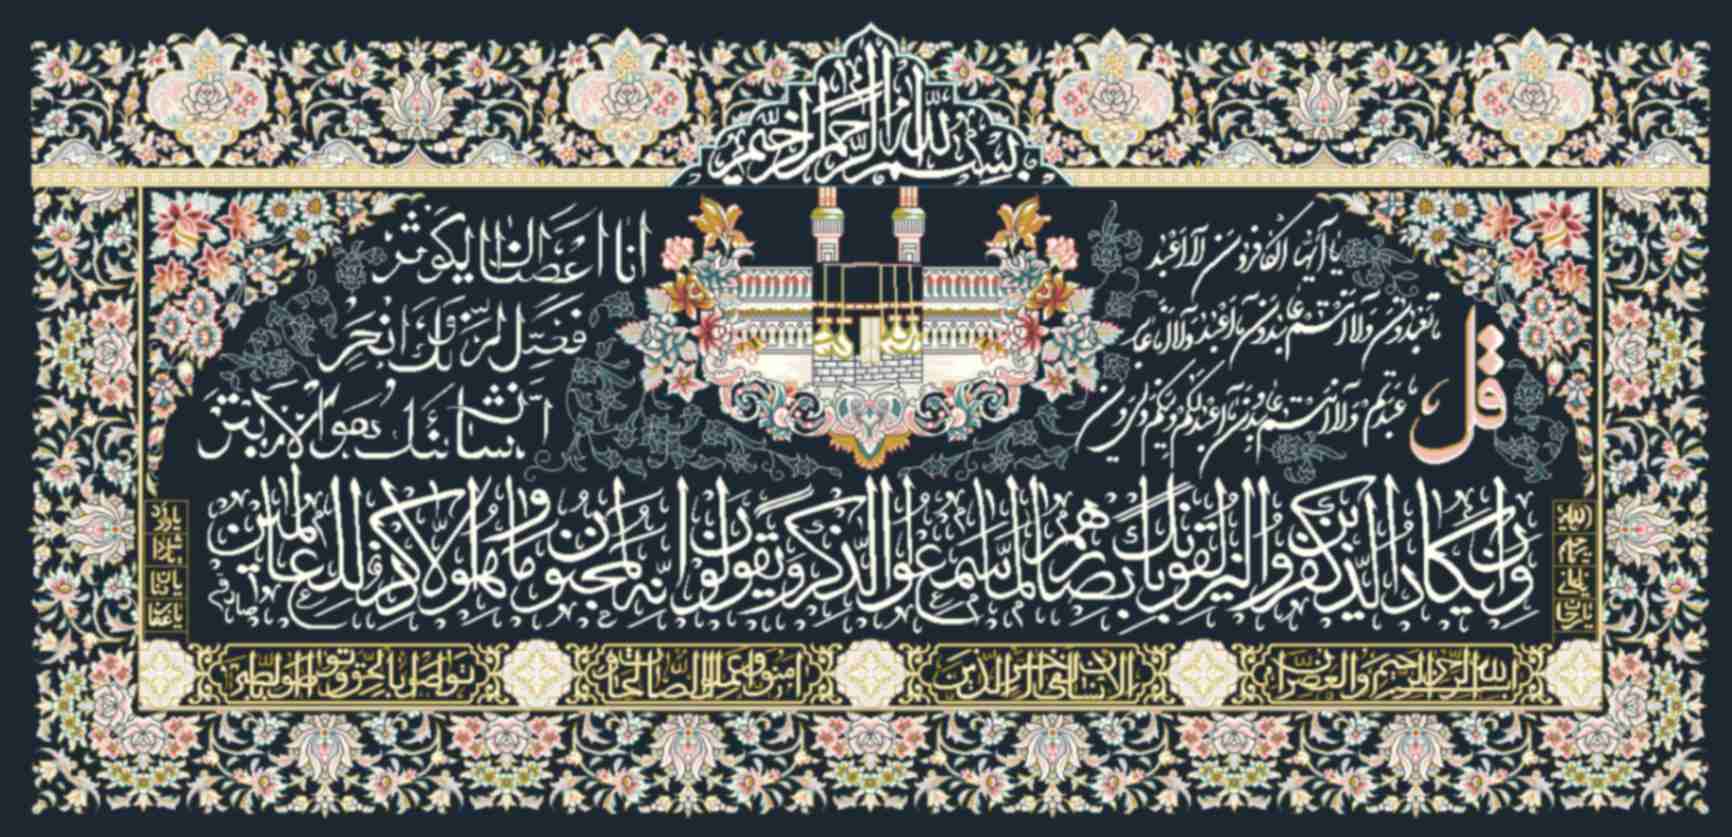 بسم الله الرحمن الرحیم
قل
یا ایها الکافرون لا اعبد
ما تعبدون ولا انتم عابدون ما اعبد ولا انا عابد
ما عبدتم ولا انتم عابدون ما اعبد لکم دینکم ولی دین
انا اعطیناک الکوثر
فصل لربک وانحر
ان شانئک هو الابتر
وان یکاد الذین کفروا لیزلقونک بابصارهم لما سمعوا الذکر و یقولون انه لمجنون وما هو الا ذکر للعالمین
بسم الله الرحمن الرحیم والعصر ان
الانسان لفی خسر الا الذین
امنوا وعملوا الصالحات
وتواصوا بالحق وتواصوا بالصبر